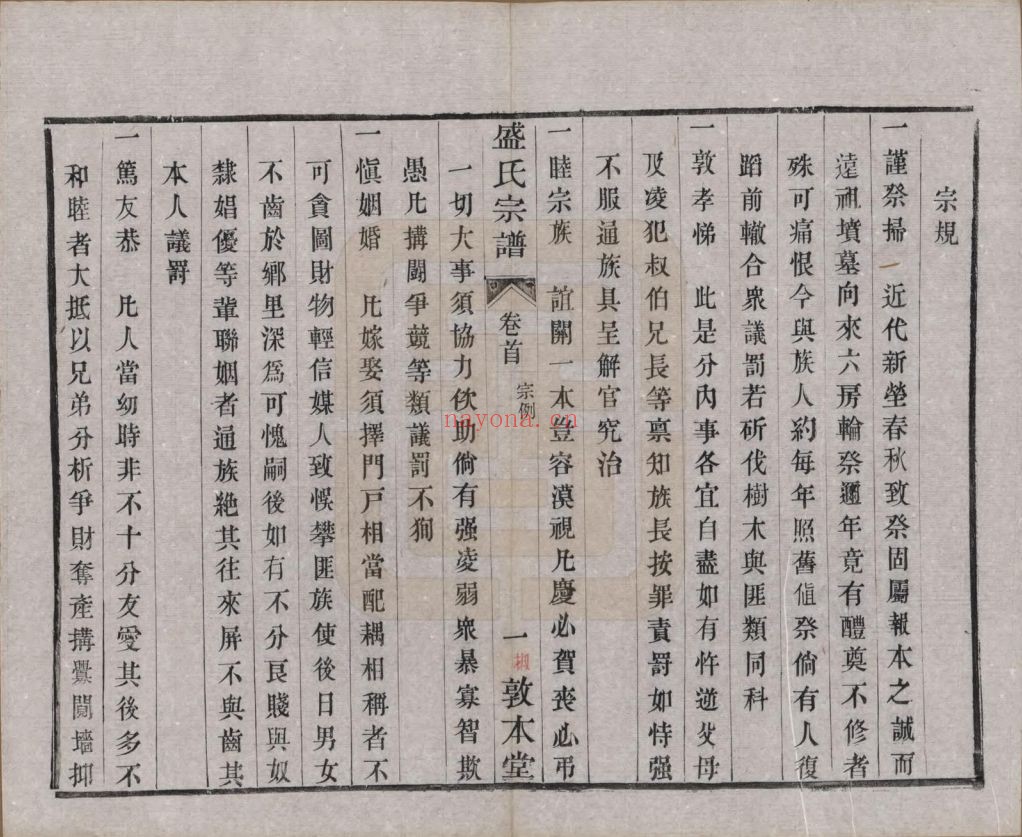 宗規
一謹祭掃 近代新塋春秋致祭固屬報本之誠而
遠祖墳墓向來六房輪祭邇年竟有醴奠不修者
殊可痛恨今與族人約每年照舊値祭倘有人復
蹈前轍合衆議罰若斫伐樹木與匪類同科
一敦孝悌 此是分內事各宜自盡如有忤逆父母
及凌犯叔伯兄長等禀知族長按罪責罰如恃强
不服通族具呈解官究治
一睦宗族 誼關一本豈容漠視凡慶必賀喪必弔
盛氏宗譜
卷首
宗例
一
敦本堂
一切大事須協力佽助倘有强凌弱衆暴寡智欺
愚凡搆鬪爭競等類議罰不狥
一愼姻婚 凡嫁娶須擇門戸相當配耦相稱者不
可貪圖財物輕信媒人致悞攀匪族使後日男女
不齒於鄉里深爲可愧嗣後如有不分良賤與奴
隸娼優等輩聯姻者通族絶其往來屏不與齒其
本人議罸
一篤友恭 凡人當幼時非不十分友愛其後多不
和睦者大抵以兄弟分析爭財奪產搆釁鬩墻抑
nayona.cn